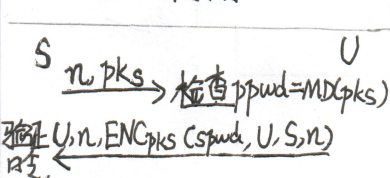 S U
n, pks 检查ppwd=MD(pks)
验证U,n,ENCpks(spwd,U,S,n)
口令